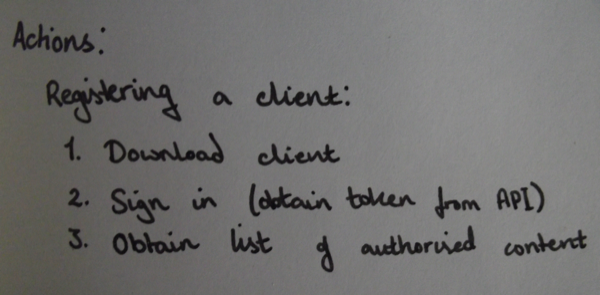 Actions:
Registering a client:
1. Download client
2. Sign in (obtain token from API)
3. Obtain list of authorised content